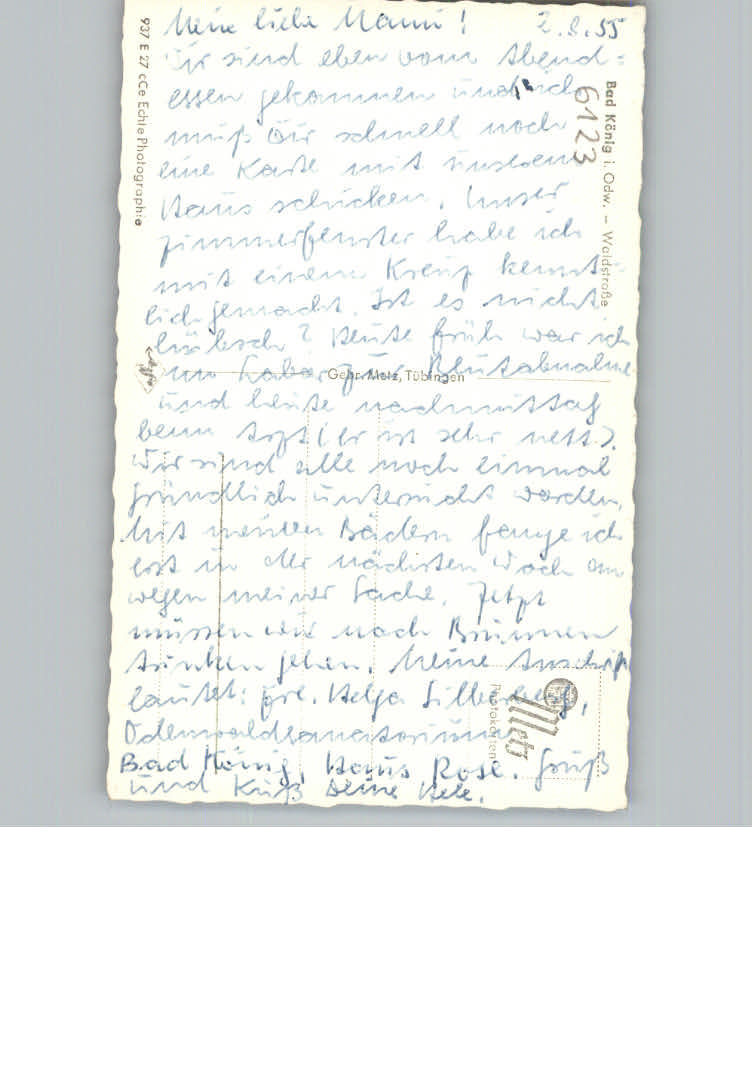 Meine liebe Mami! 2.8.55
Wir sind eben vom Abend-
essen gekommen und ich
muß Dir schnell noch
eine Karte mit unserem
Haus schicken. Unser
Zimmerfenster habe ich
mit einem Kreuz kennt-
lich gemacht. Ist es nicht
hübsch? Heute früh war ich
im Labor zur Blutabnahme
und heute nachmittag
beim Arzt (er ist sehr nett).
Wir sind alle noch einmal
gründlich untersucht worden.
Mit meinen Bädern fange ich
erst in der nächsten Woche an
wegen meiner Sache. Jetzt
müssen wir noch Brunnen
trinken gehen. Meine Anschrift
lautet: Frl. Helga
Odenwaldsanatorium
Bad König, Haus Rose. Gruß
und Kuß Deine Hele.
Bad König i. Odw. – Waldstraße
6123
937 E 27 cCe Echte Photographie
Agfa
Gebr. Metz, Tübingen
Metz
Photokarten